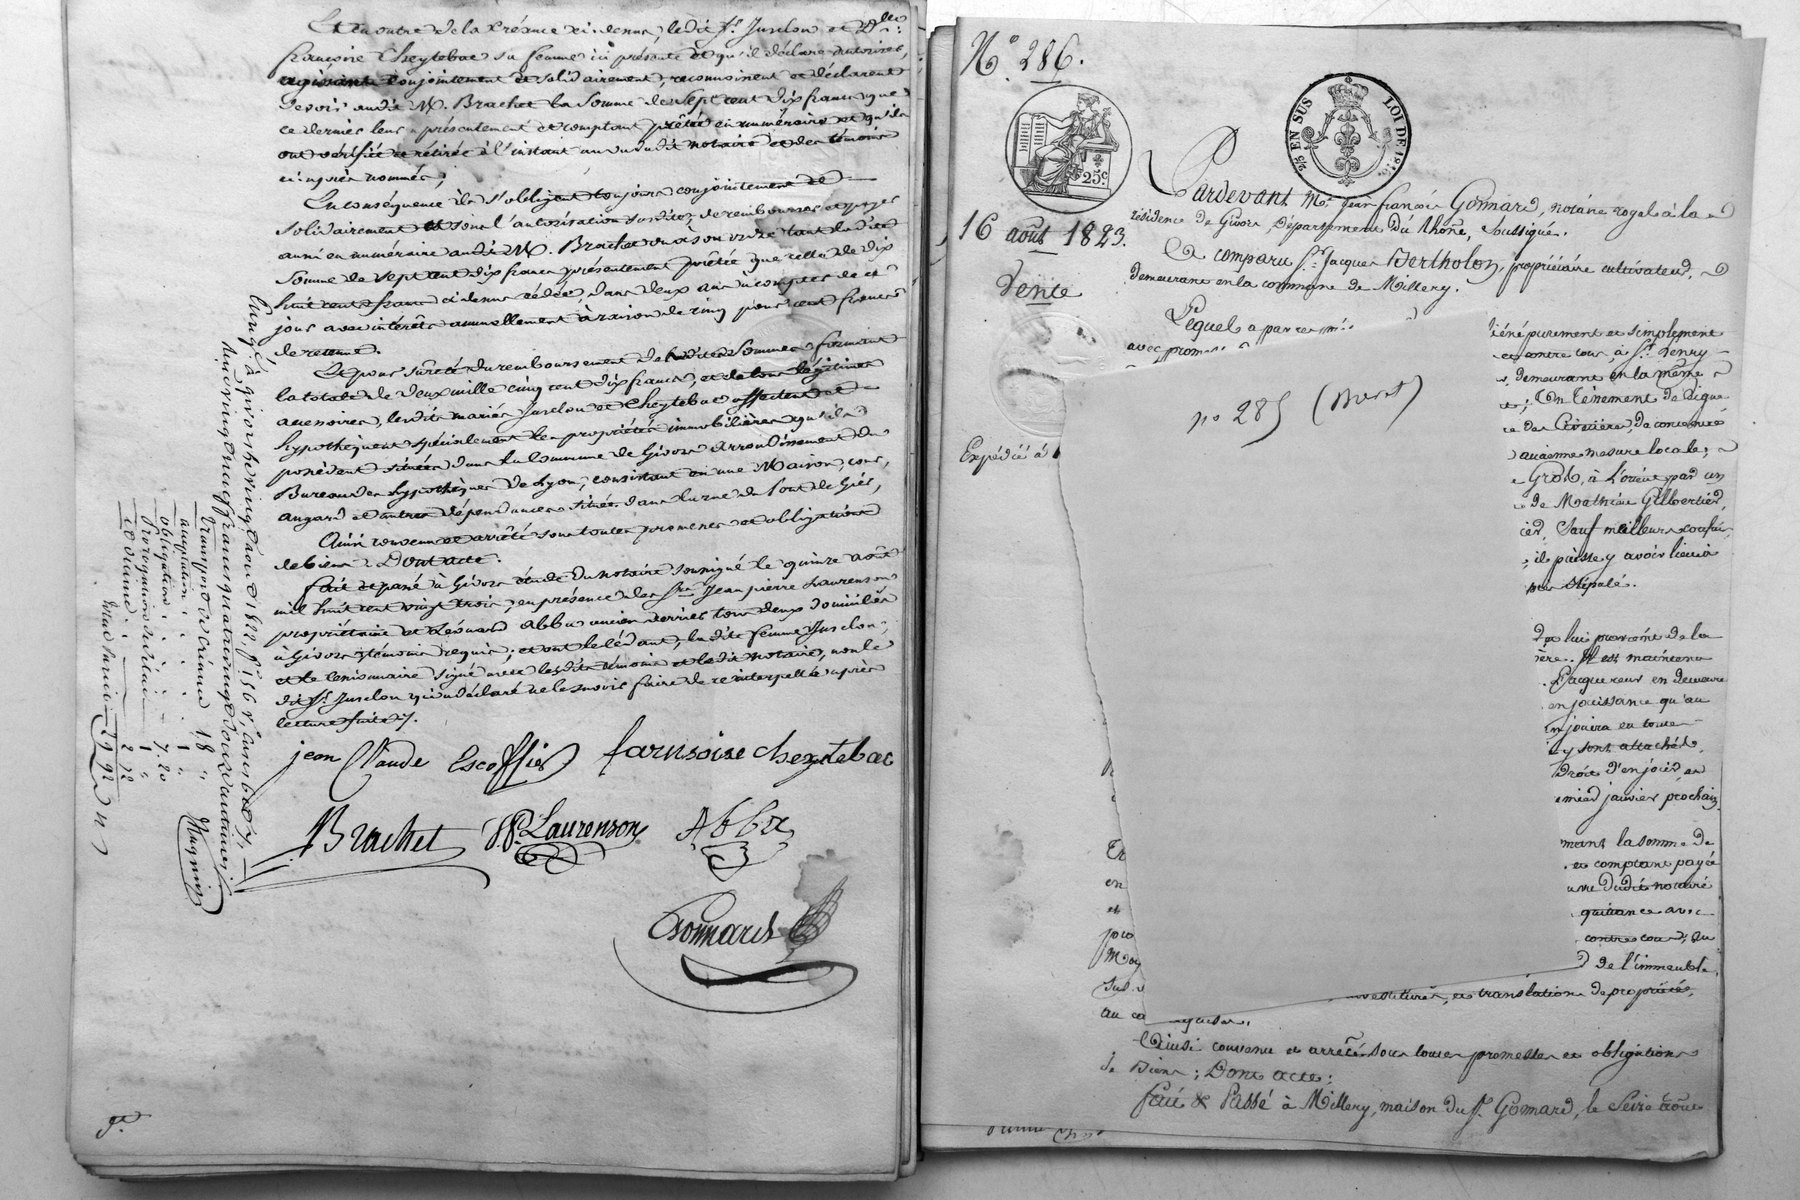 Et en outre de la créance ci devant, ledit Sr. Juselou et Dlle.
françoise Cheytebac sa femme ici présente et qu'il déclare autoriser,
agissants conjointement et solidairement, reconnoissent et déclarent
devoir audit M. Brachet la Somme de Sept cent dix francs que
ce dernier leur a présentement et comptant prêtée en numéraire et qu'ils
ont vérifiée et retirée à l'instant au vu dudit notaire et des témoins
ci après nommés;
En conséquence ils s'obligent toujours conjointement et
solidairement et sous l'autorisation susdite, de rembourser et payer
aussi en numéraire audit M. Brachet ou à son ordre tant ladite
somme de sept cent dix francs présentement prêtée que celle de dix
huit cent francs ci devant cédée, dans deux ans à compter de ce
jour avec intérêts annuellement à raison de cinq pour cent francs
de retenue.
Et pour sûreté du remboursement desdites Sommes formant
la totale de deux mille cinq cent dix francs, et de tous légitimes
accessoires, lesdits mariés Juselou et Cheytebac affectent et
hypothèquent spécialement les propriétés immobilières qu'ils
possèdent situées dans la Commune de Givors Arrondissement du
Bureau des hypothèques de Lyon, consistant en une Maison, cour,
angard et autres dépendances située dans la rue du Pont de Giés,
Ainsi convenu et arrêté sous toutes promesses et obligations
de biens. Dont acte.
fait et passé à Givors étude du notaire soussigné le quinze août
mil huit cent vingt trois, en présence des Srs. Jean pierre Laurenson
propriétaire et Léonard Abba ancien verrier tous deux domiciliés
à Givors témoins requis; et ont le cédant, ladite femme Juselou,
et le cessionnaire signé avec lesdits témoins et ledit notaire, non le
dit Sr. Juselou qui a déclaré ne le savoir faire de ce interpellé après
lecture faite.
jean Claude Escoffier farnsoise cheytebac
Brachet JP. Laurenson Abba
Gomard
Enregistré à Givors le vingt août 1823, fo. 156
reçu vingt neuf francs quatre vingt douze centimes
18
1
7 20
1
2 72
29 92
Magnin
No. 286.
25 EN SUS LOI DE
25c.
16 août 1823.
Vente
Expédié à
Pardevant Me. Jean françois Gomard, notaire royal à la
résidence de Givors, Département du Rhône, soussigné.
A comparu Sr. Jacques Bertholon, propriétaire cultivateur,
demeurant en la commune de Millery.
Lequel a par ces
avec prom
no 285
liéné purement et simplement
et contre tous, à Sr. henry
demeurant en la même
; Un Ténement de Vigne
ce des Crivières, de contenue
ancienne mesure locale;
Gros, à l'orient par un
de Mathieu Gilbertier,
ier, sauf meilleurs confins
; il puisse y avoir lieu à
stipulé.
de lui provient de la
ère. Il est maintenu
L'acquereur en demeure
en jouissance qu'au
en jouira en toute
y sont attachés
droit d'en jouir, en
mier janvier prochain
mant la somme de
et comptant payée
u vu dudit notaire
quittance avec
contre cou, du
de l'immeuble,
en
et
pro
moy
investiture, et translation de propriété,
au ca quises.
Ainsi convenu et arrêté sous toutes promesses et obligations
de Biens; Dont acte:
fait & Passé à Millery, maison du Sr. Gomard, le Seize août